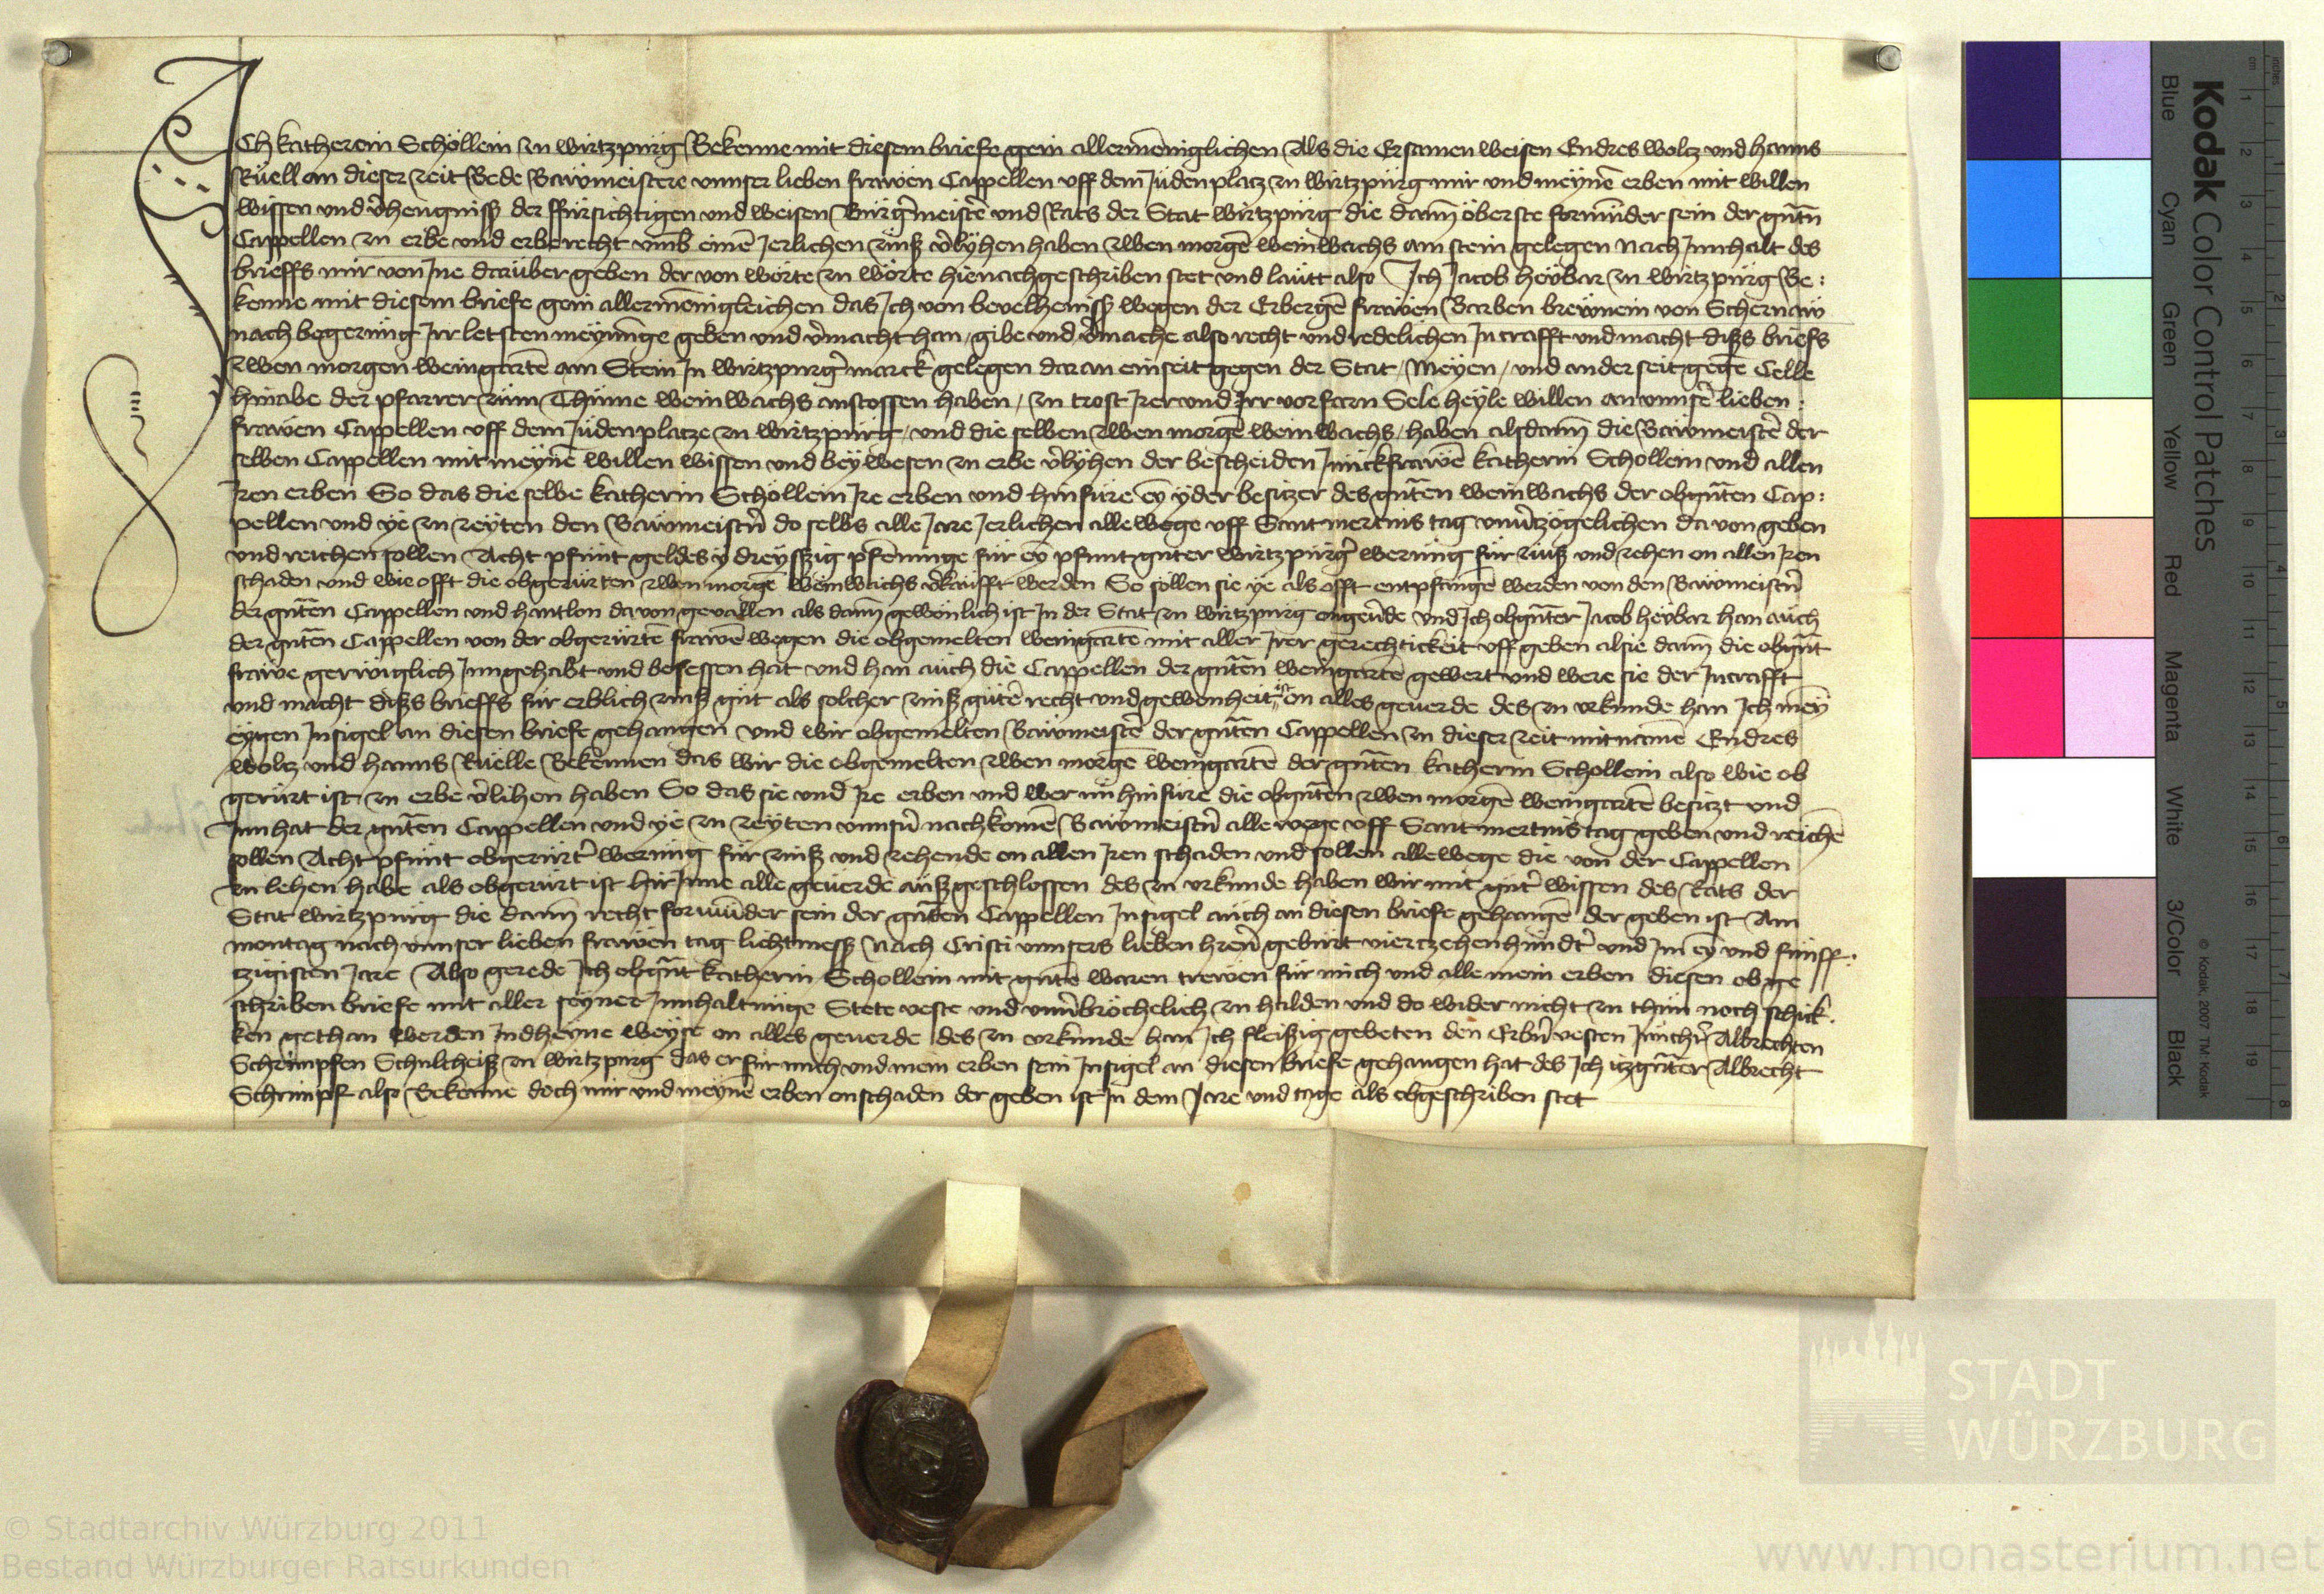 ICh Katherein Schöllein zu wirtzpurg Bekenne mit diesem briefe gein allermēniglichen Als die Ersamen weisen Endres woltz und hanns
Rüell an dieser zeit Bede Bawmeistere unnser lieben frawen Cappellen uff dem Judenplatz zu wirtzpurg mir und meynē erben mit willen
wissen und v̄hengniss der ffürsichtigen und weisen Bürgermeistē und Rats der Stat wirtzpurg die dann öberste formünder sein der gnātn
Cappellen zu erbe und erberecht umb einē Jerlichen zinß v̄lyhen haben zwen morgē weinwachs am stein gelegen nach Jnnhalt des
brieffs mir von Jne darüber geben der von worte zu worte hienachgeschriben stet und lautt also Ich Jacob heybar zu wirtzpurg Be:
kenne mit diesem briefe gein allermēnigleichen das Ich von bevelheniss wegen der Erbergē frawen Barben brewnein von Schernaw
nach begerung Jrr letsten meynunge geben und v̄macht han / gibe und v̄mache also recht und redelichen Jn crafft und macht diss briefs
zwen morgen weingartē am Stein Jn wirtzpurgr̄ marck gelegen daran einseit gegen der Stat / Meyen / und anderseit gegē Celle
hinabe der pfarrer zum Thume weinwachs anstossen haben / zu trost Jrer und Jrr vorfarn Sele heyle willen an unnsē lieben :
frawen Cappellen uff dem Judenplatze zu wirtzpurg / und die selben zwen morgē weinwachs / haben alsdann die Bawmeistē der
selben Cappellen mit meynē willen wissen und beywesen zu erbe v̄lyhen der bescheiden Junckfrawē Katherin Schollein und allen
Jren erben So das die selbe Katherin Schöllein Jre erben und hinfüre ey yder besitzer des gnātē weinwachs der obgnātē Cap:
pellen und ye zu zeyten den Bawmeistn̄ do selbs alle Jare Jerlichen allewege uff Sant mertins tag unv̄tzögelichen davon geben
und reichen sollen Acht pfunt geldes y dreyssig pfenninge für ey pfunt guter wirtzpurgr̄ werung für zinß und zehen on allen Jren
schaden und wie offt die obgerürten zwen morgē weinwachs v̄kaufft werden So sollen sie ye als offt entpfangē werden von den Bawmeistn̄
der gnātē Cappellen und hantlon davon gevallen als dann gewönlich ist Jn der Stat zu wirtzpurg ongev̄de und Ich obgnātēr Jacob heybar han auch
der gnātē Cappellen von der obgerürtē frawē wegen die obgemelten weingartē mit aller Jrer gerechtickeit uff geben alsie dann die obgnāt
frawe gerwiglich Jnngehabt und besessen hat und han auch die Cappellen der gnātē weingartē gewert und were sie der Jn crafft
und macht diss brieffs für erblich zinß gut als solcher zinß gutē recht und gewonheit ist on alles geverde des zu urkunde han Ich mey
eygen Jnsigel an diesen briefe gehangen und wir obgemelten Bawmeistē der gnātē Cappellen zu dieser zeit mit namē Endres
woltz und hanns Rüelle Bekennen das wir die obgemelten zwen morgē weingartē der gnātē Katherin Schollein also wie ob
gerürt ist zu erbe v̄lihen haben So das sie und Jre erben und wer nu hinfüre die obgnātē zwen morgē weingartē besitzt und
Jnn hat der gnātē Cappellen und ye zu zeyten unnsn̄ nachkomē Bawmeistn̄ allewege uff Sant mertins tag geben und reichē
sollen Acht pfunt obgerürtr̄ werung für zinß und zehende on allen Jren schaden und sollen allewege die von der Cappellen
zu lehen habē als obgerürt ist hirJnne alle geverde außgeschlossen des zu urkunde haben wir mit gutr̄ wissen des Rats der
Stat wirtzpurg die dann recht formünder sein der gnātē Cappellen Jnsigel auch an diesen briefe gehangē der geben ist Am
montag nach unnser lieben frawen tag lichtmess Nach Cristi unnsers lieben hren̄ geburt viertzehenhundt̄ und Jm ey und funff:
tzigisten Jare Also gerede Ich obgnāt Katherin Schollein mit gutē waren trewen für mich und alle mein erben diesen obge
schriben briefe mit aller seyner Jnnhaltunge Stete veste und unv̄bröchelich zu halden und do wider nicht zu thun noch schick:
ken gethan werden Jndheyne weyse on alles geverde des zu urkunde han Ich fleissig gebeten den Erbn̄ vesten Junchr̄ Albrechten
Schrimpfen Schultheiß zu wirtzpurg das er für mich und mein erben sein Jnsigel an diesen briefe gehangen hat des Ich itzgnātēr Albrecht
Schrimpf also Bekenne doch mir und meynē erben onschaden der geben ist Jn dem Jare und tage als obgeschriben stet
Kodak Color Control Patches
Blue Cyan Green Yellow Red Magenta White 3/Color Black
© Kodak, 2007 TM: Kodak
cm 1 2 3 4 5 6 7 8 9 10 11 12 13 14 15 16 17 18 19
inches 1 2 3 4 5 6 7 8
STADT
WÜRZBURG
© Stadtarchiv Würzburg 2011
Bestand Würzburger Ratsurkunden
www.monasterium.net